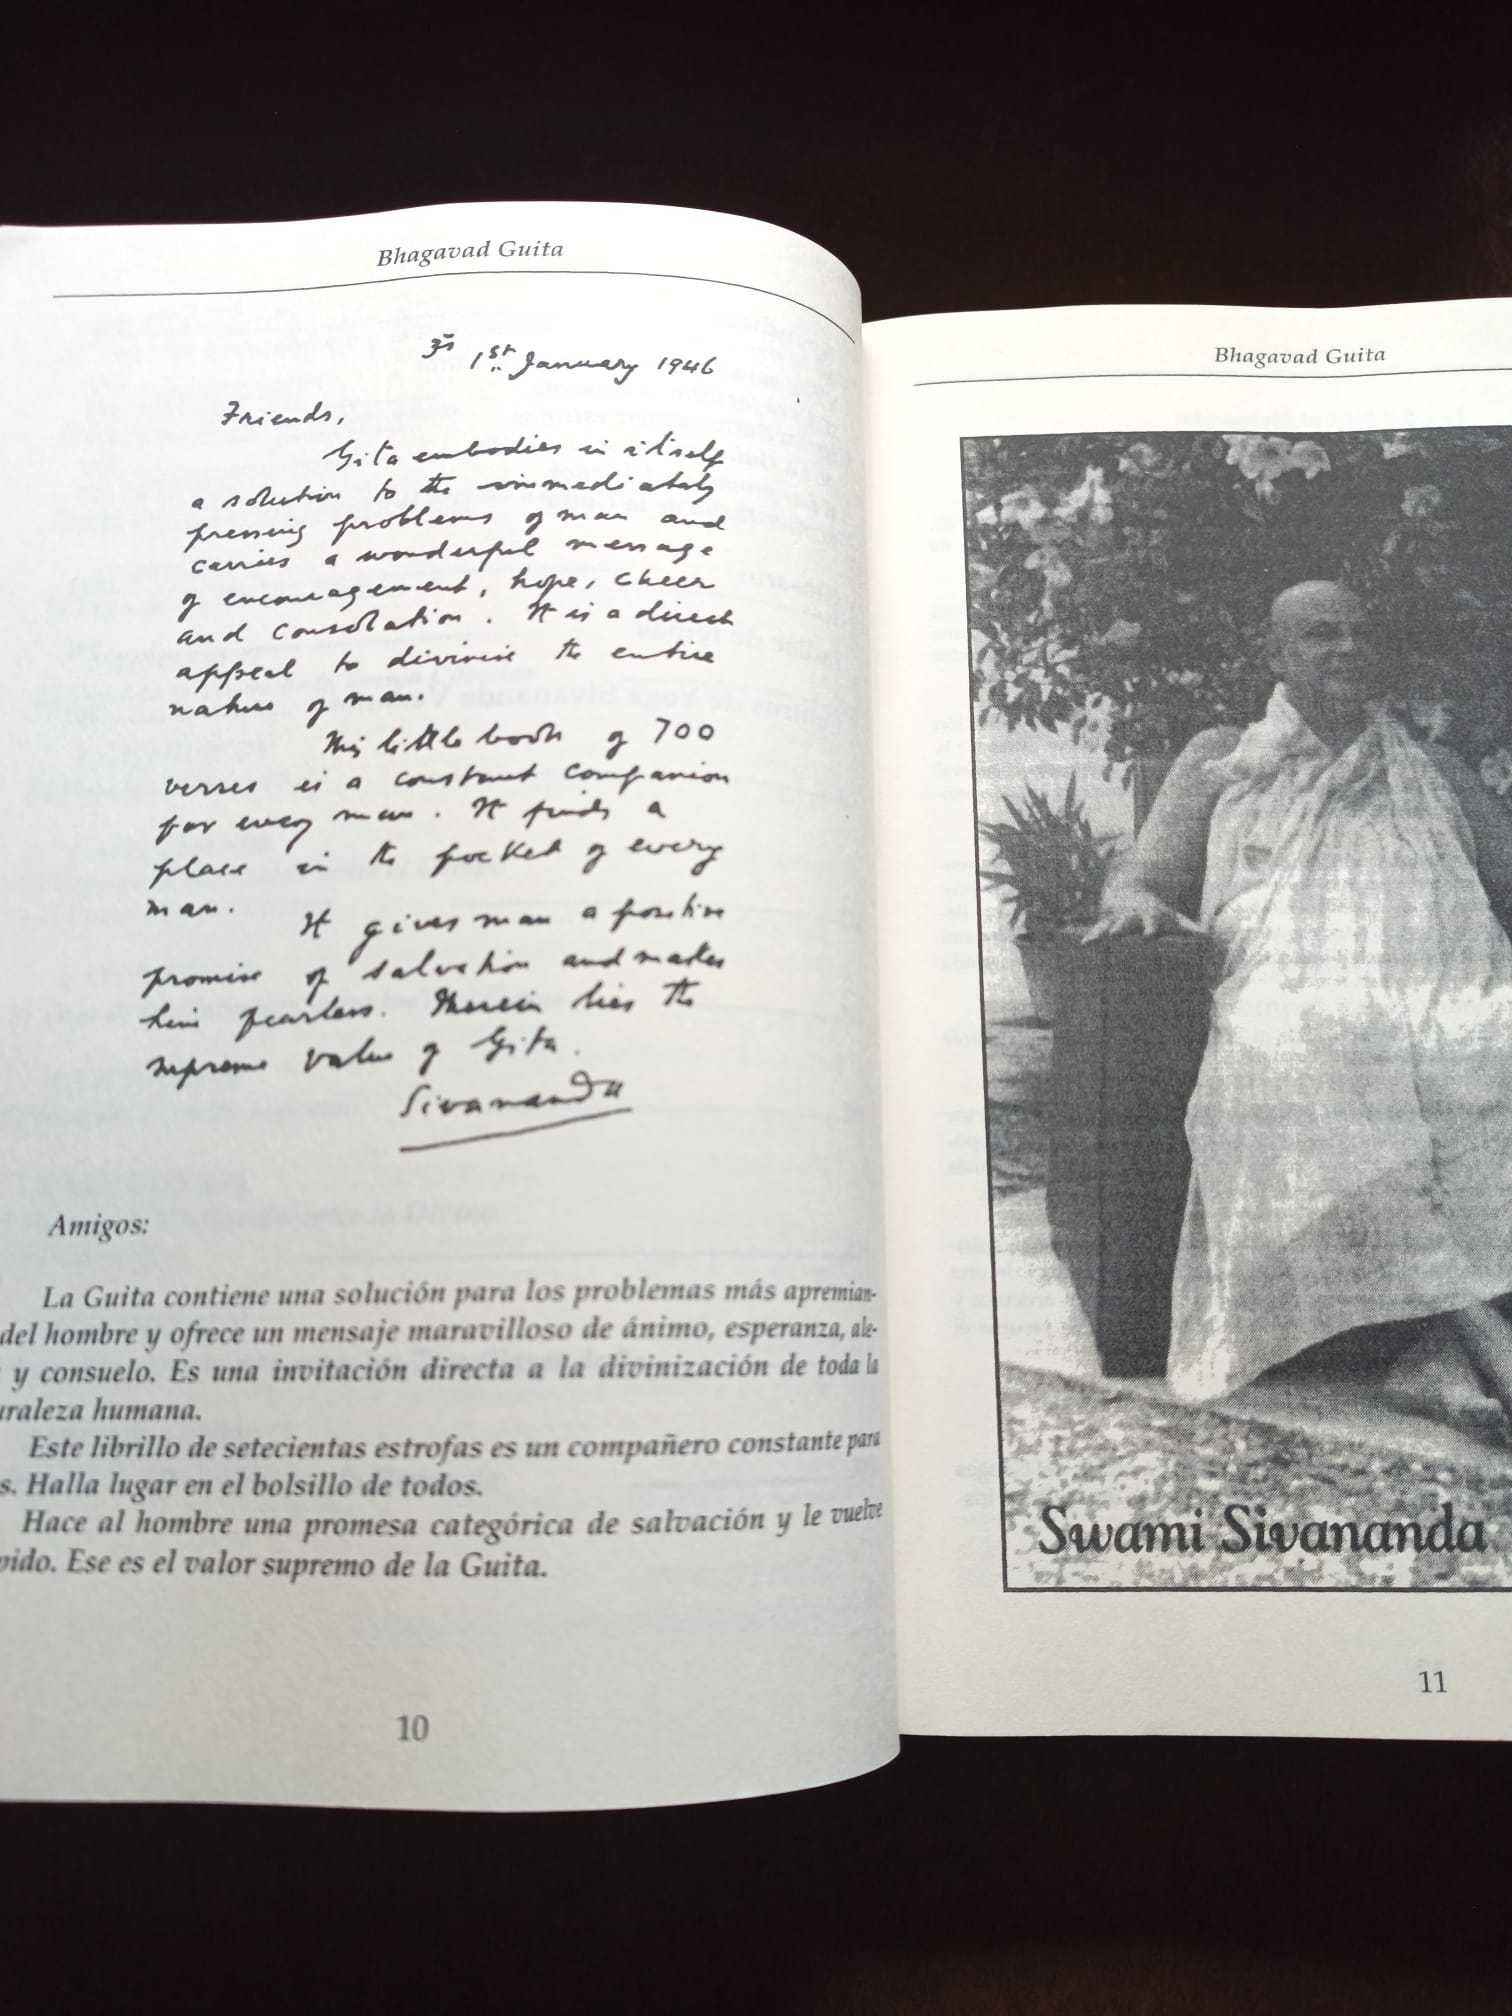 Bhagavad Guita
ॐ 1st January 1946
Friends,
Gita embodies in itself
a solution to the immediately
pressing problems of man and
carries a wonderful message
of encouragement, hope, cheer
and consolation. It is a direct
appeal to divinise the entire
nature of man.
This little book of 700
verses is a constant companion
for every man. It finds a
place in the pocket of every
man.
It gives man a positive
promise of salvation and makes
him fearless. Therein lies the
supreme value of Gita.
Sivananda
Amigos:
La Guita contiene una solución para los problemas más apremian-
del hombre y ofrece un mensaje maravilloso de ánimo, esperanza, ale-
y consuelo. Es una invitación directa a la divinización de toda la
uraleza humana.
Este librillo de setecientas estrofas es un compañero constante para
s. Halla lugar en el bolsillo de todos.
Hace al hombre una promesa categórica de salvación y le vuelve
pido. Ese es el valor supremo de la Guita.
10
Bhagavad Guita
Swami Sivananda
11